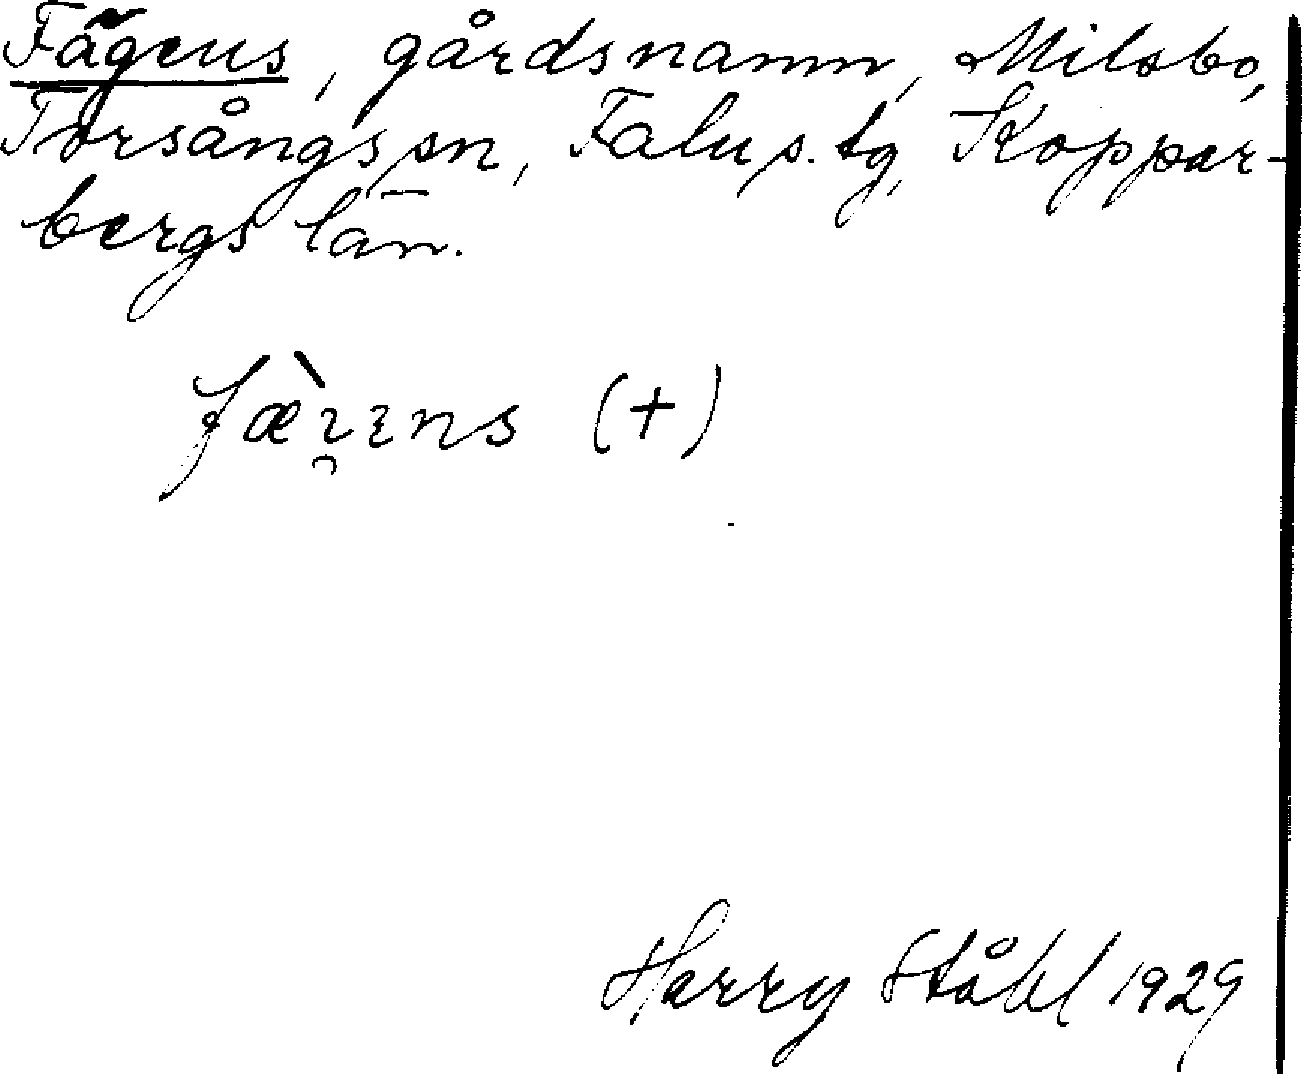 Fägens, gårdsnamn, Milsbo,
Torsångs sn, Falu s. tg, Koppar-
bergs län.
(+)
Harry Ståhl 1929